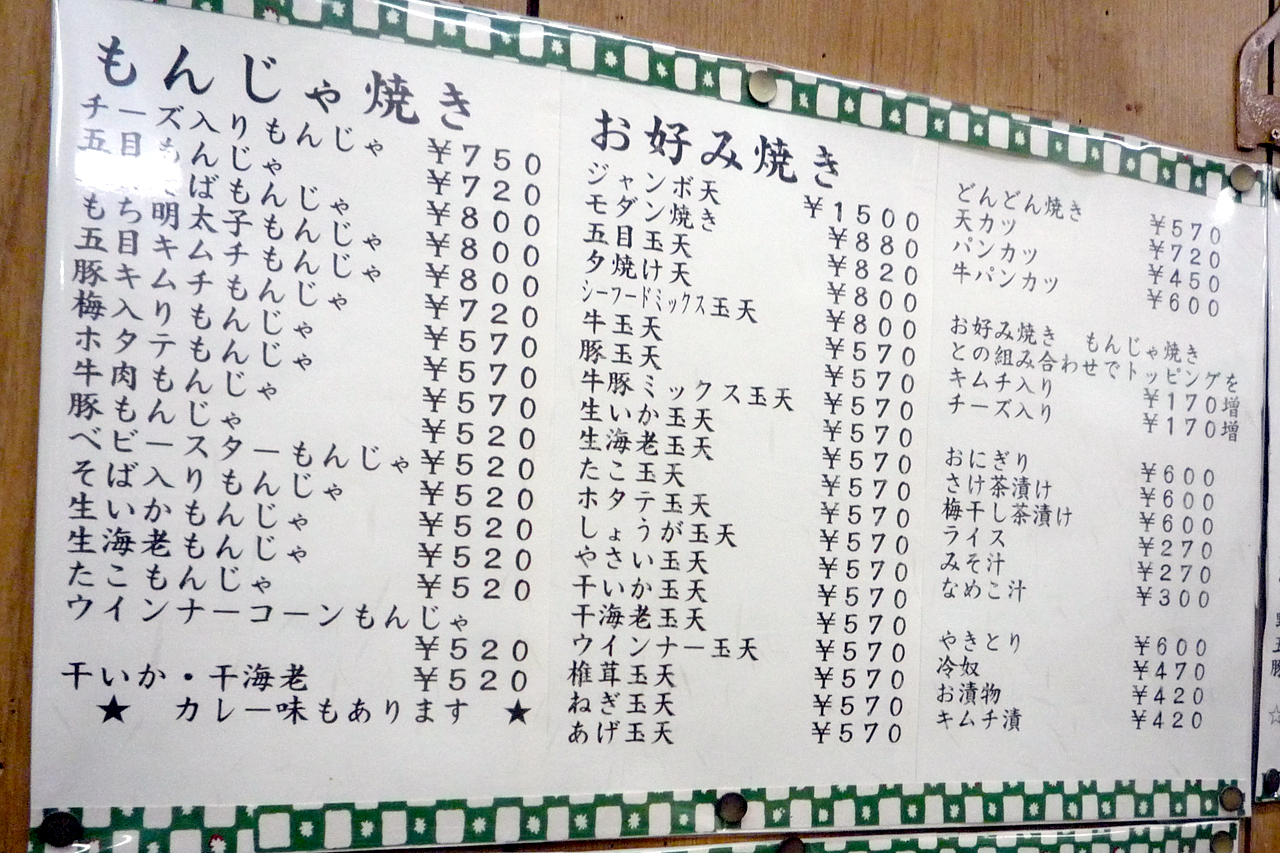 もんじゃ焼き
チーズ入りもんじゃ ¥750
五目もんじゃ ¥720
ばもんじゃ ¥800
もち明太子もんじゃ ¥800
五目キムチもんじゃ ¥800
豚キムチもんじゃ ¥720
梅入りもんじゃ ¥570
ホタテもんじゃ ¥570
牛肉もんじゃ ¥570
豚もんじゃ ¥520
ベビースターもんじゃ ¥520
そば入りもんじゃ ¥520
生いかもんじゃ ¥520
生海老もんじゃ ¥520
たこもんじゃ ¥520
ウインナーコーンもんじゃ
¥520
干いか・干海老 ¥520
★ カレー味もあります ★
お好み焼き
ジャンボ天 ¥1500
モダン焼き ¥880
五目玉天 ¥820
夕焼け天 ¥800
シーフードミックス玉天 ¥800
牛玉天 ¥570
豚玉天 ¥570
牛豚ミックス玉天 ¥570
生いか玉天 ¥570
生海老玉天 ¥570
たこ玉天 ¥570
ホタテ玉天 ¥570
しょうが玉天 ¥570
やさい玉天 ¥570
干いか玉天 ¥570
干海老玉天 ¥570
ウインナー玉天 ¥570
椎茸玉天 ¥570
ねぎ玉天 ¥570
あげ玉天 ¥570
どんどん焼き ¥570
天カツ ¥720
パンカツ ¥450
牛パンカツ ¥600
お好み焼き もんじゃ焼き
との組み合わせでトッピングを
キムチ入り ¥170増
チーズ入り ¥170増
おにぎり ¥600
さけ茶漬け ¥600
梅干し茶漬け ¥600
ライス ¥270
みそ汁 ¥270
なめこ汁 ¥300
やきとり ¥600
冷奴 ¥470
お漬物 ¥420
キムチ漬 ¥420